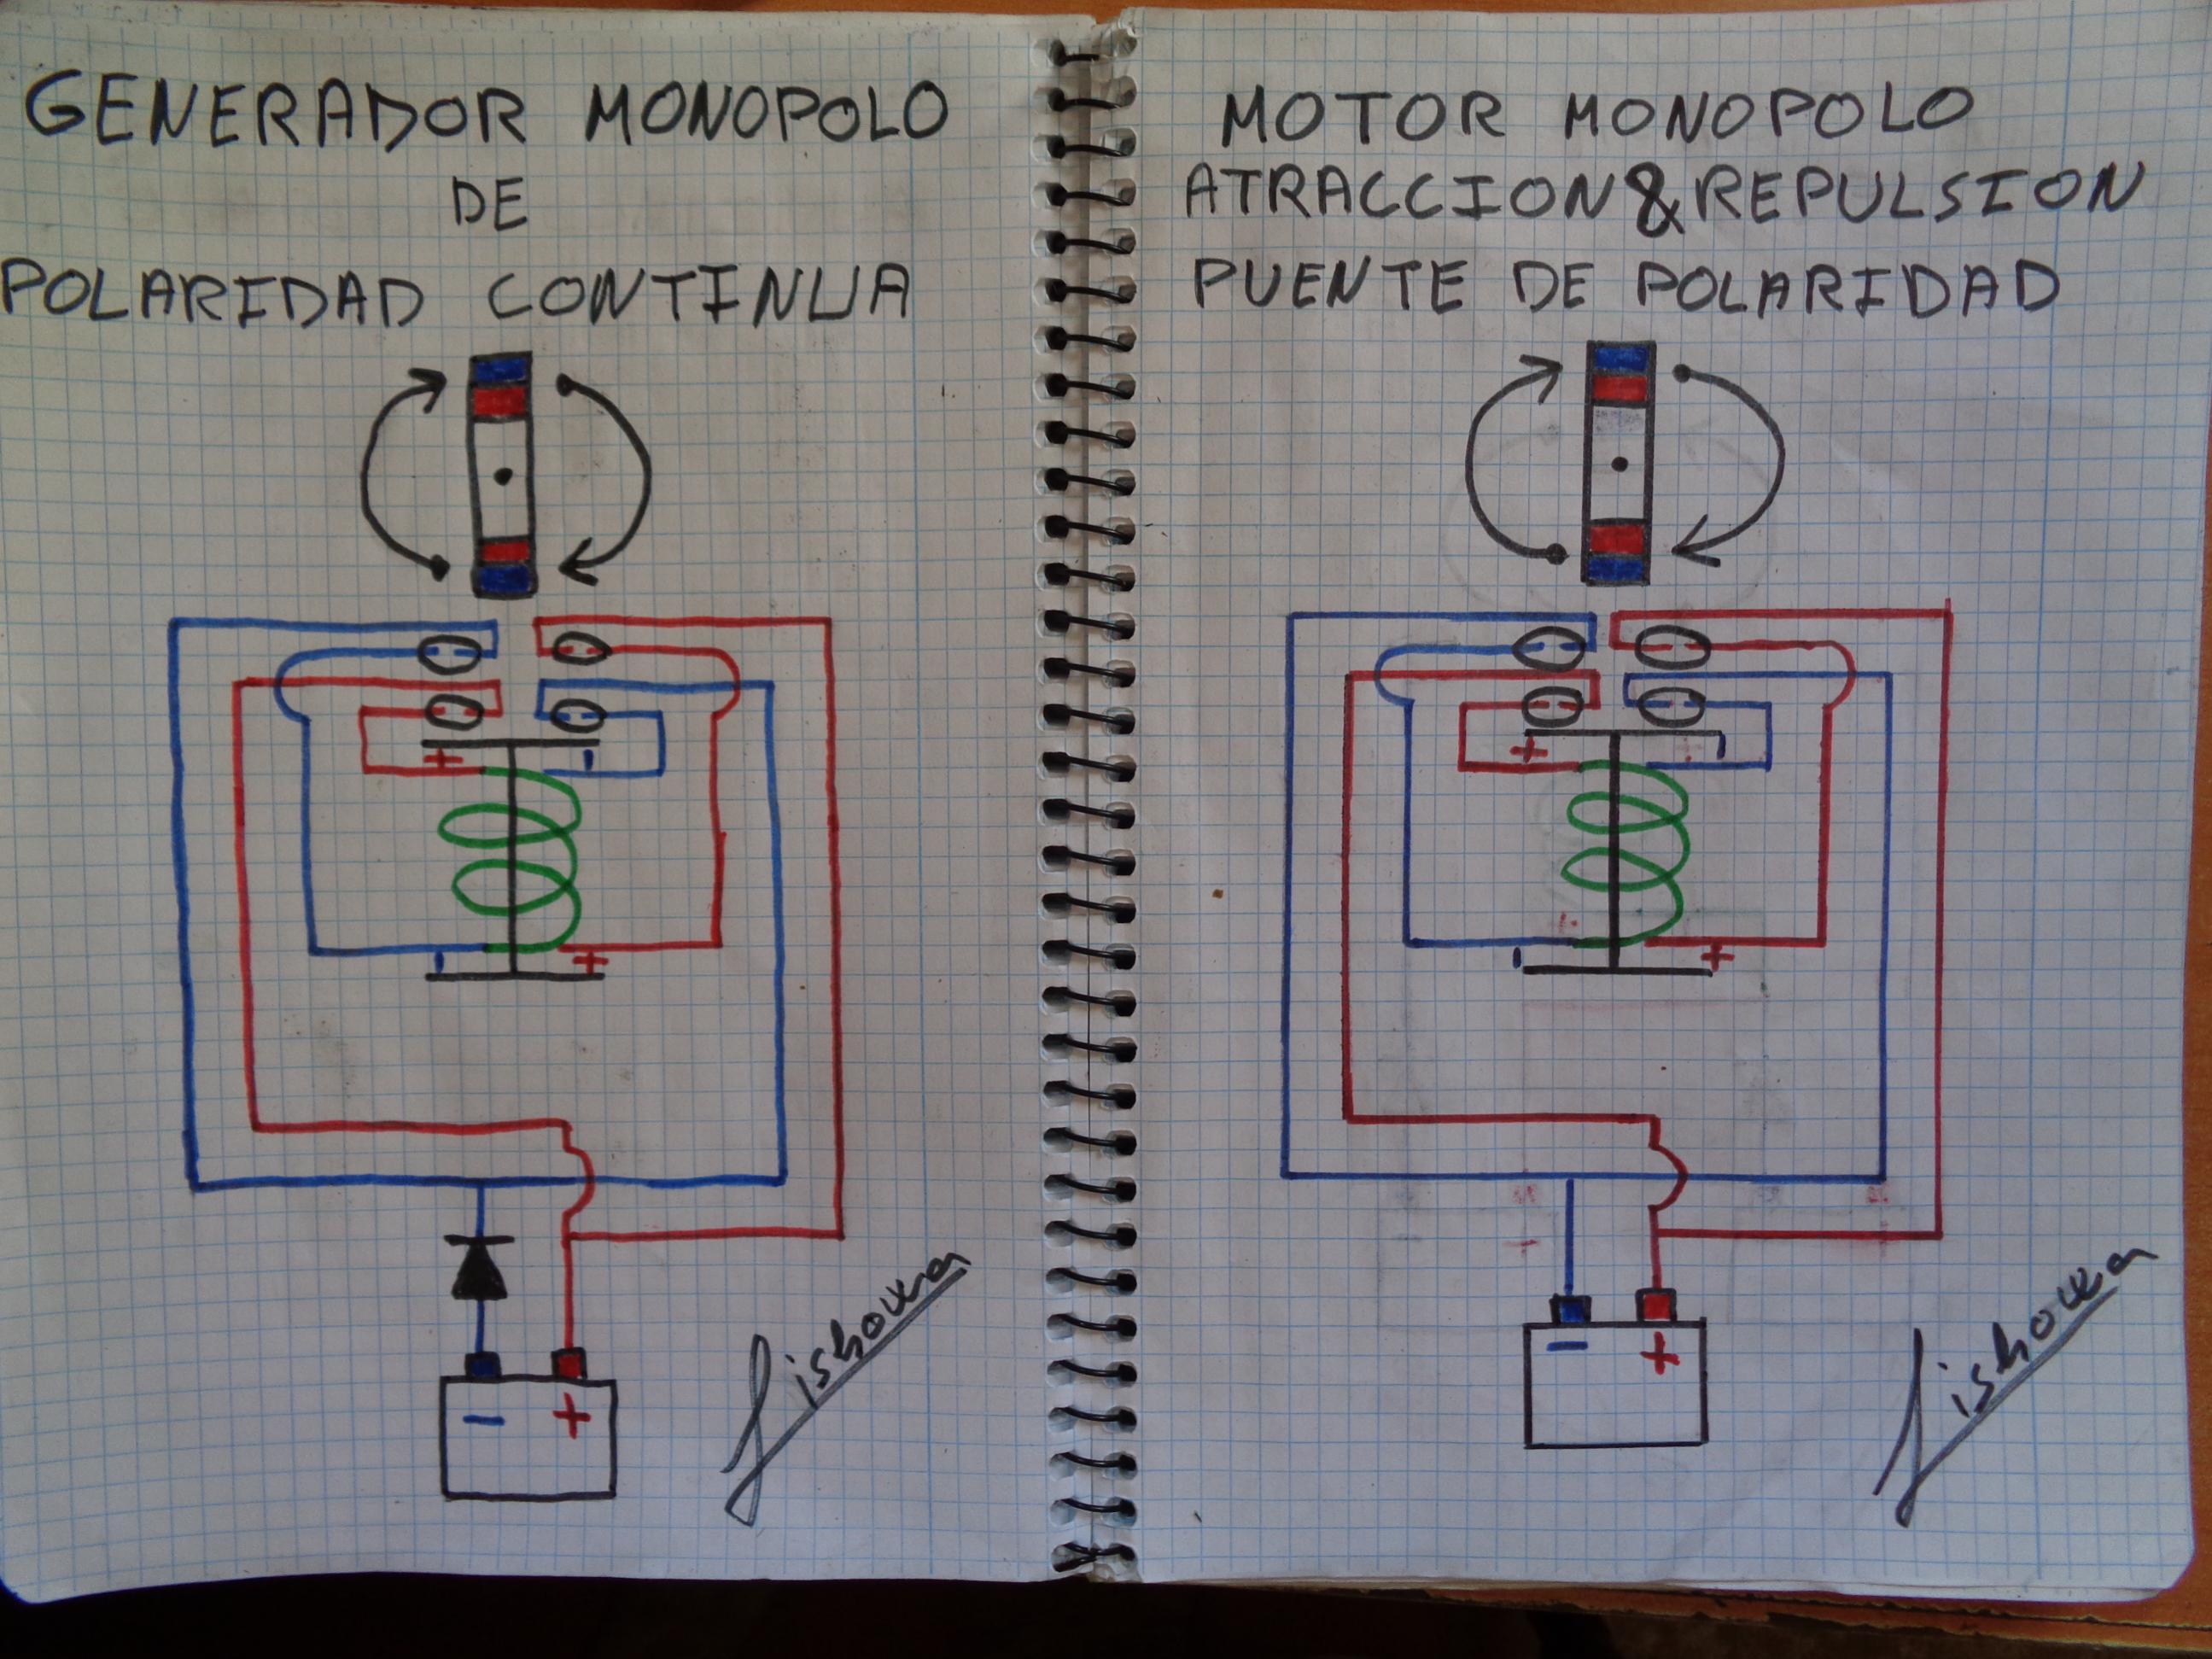 GENERADOR MONOPOLO
DE
POLARIDAD CONTINUA
+ -
- +
- +
MOTOR MONOPOLO
ATRACCION & REPULSION
PUENTE DE POLARIDAD
+ -
- +
- +